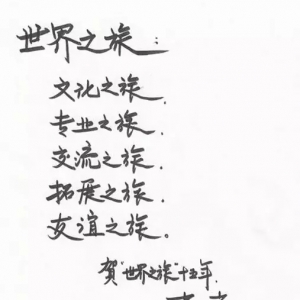 世界之旅：
文化之旅、
专业之旅、
交流之旅、
拓展之旅、
友谊之旅。
贺“世界之旅”十五年.